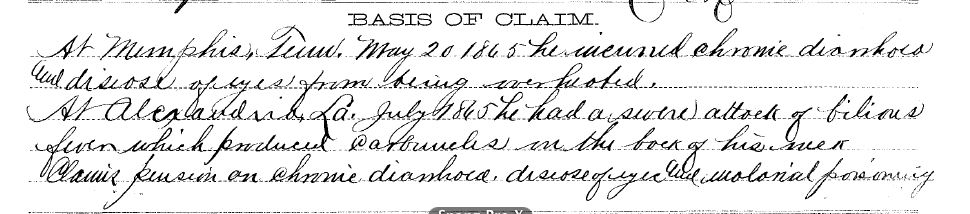 BASIS OF CLAIM.
At Memphis, Tenn. May 20 1865 he incurred chronic diarrhoea
and disease of eyes from being overheated.
At Alexandria, La. July 1865 he had a severe attack of bilious
fever which produced carbuncles on the back of his neck
Claims pension on chronic diarrhoea. disease of eyes and malarial poisoning